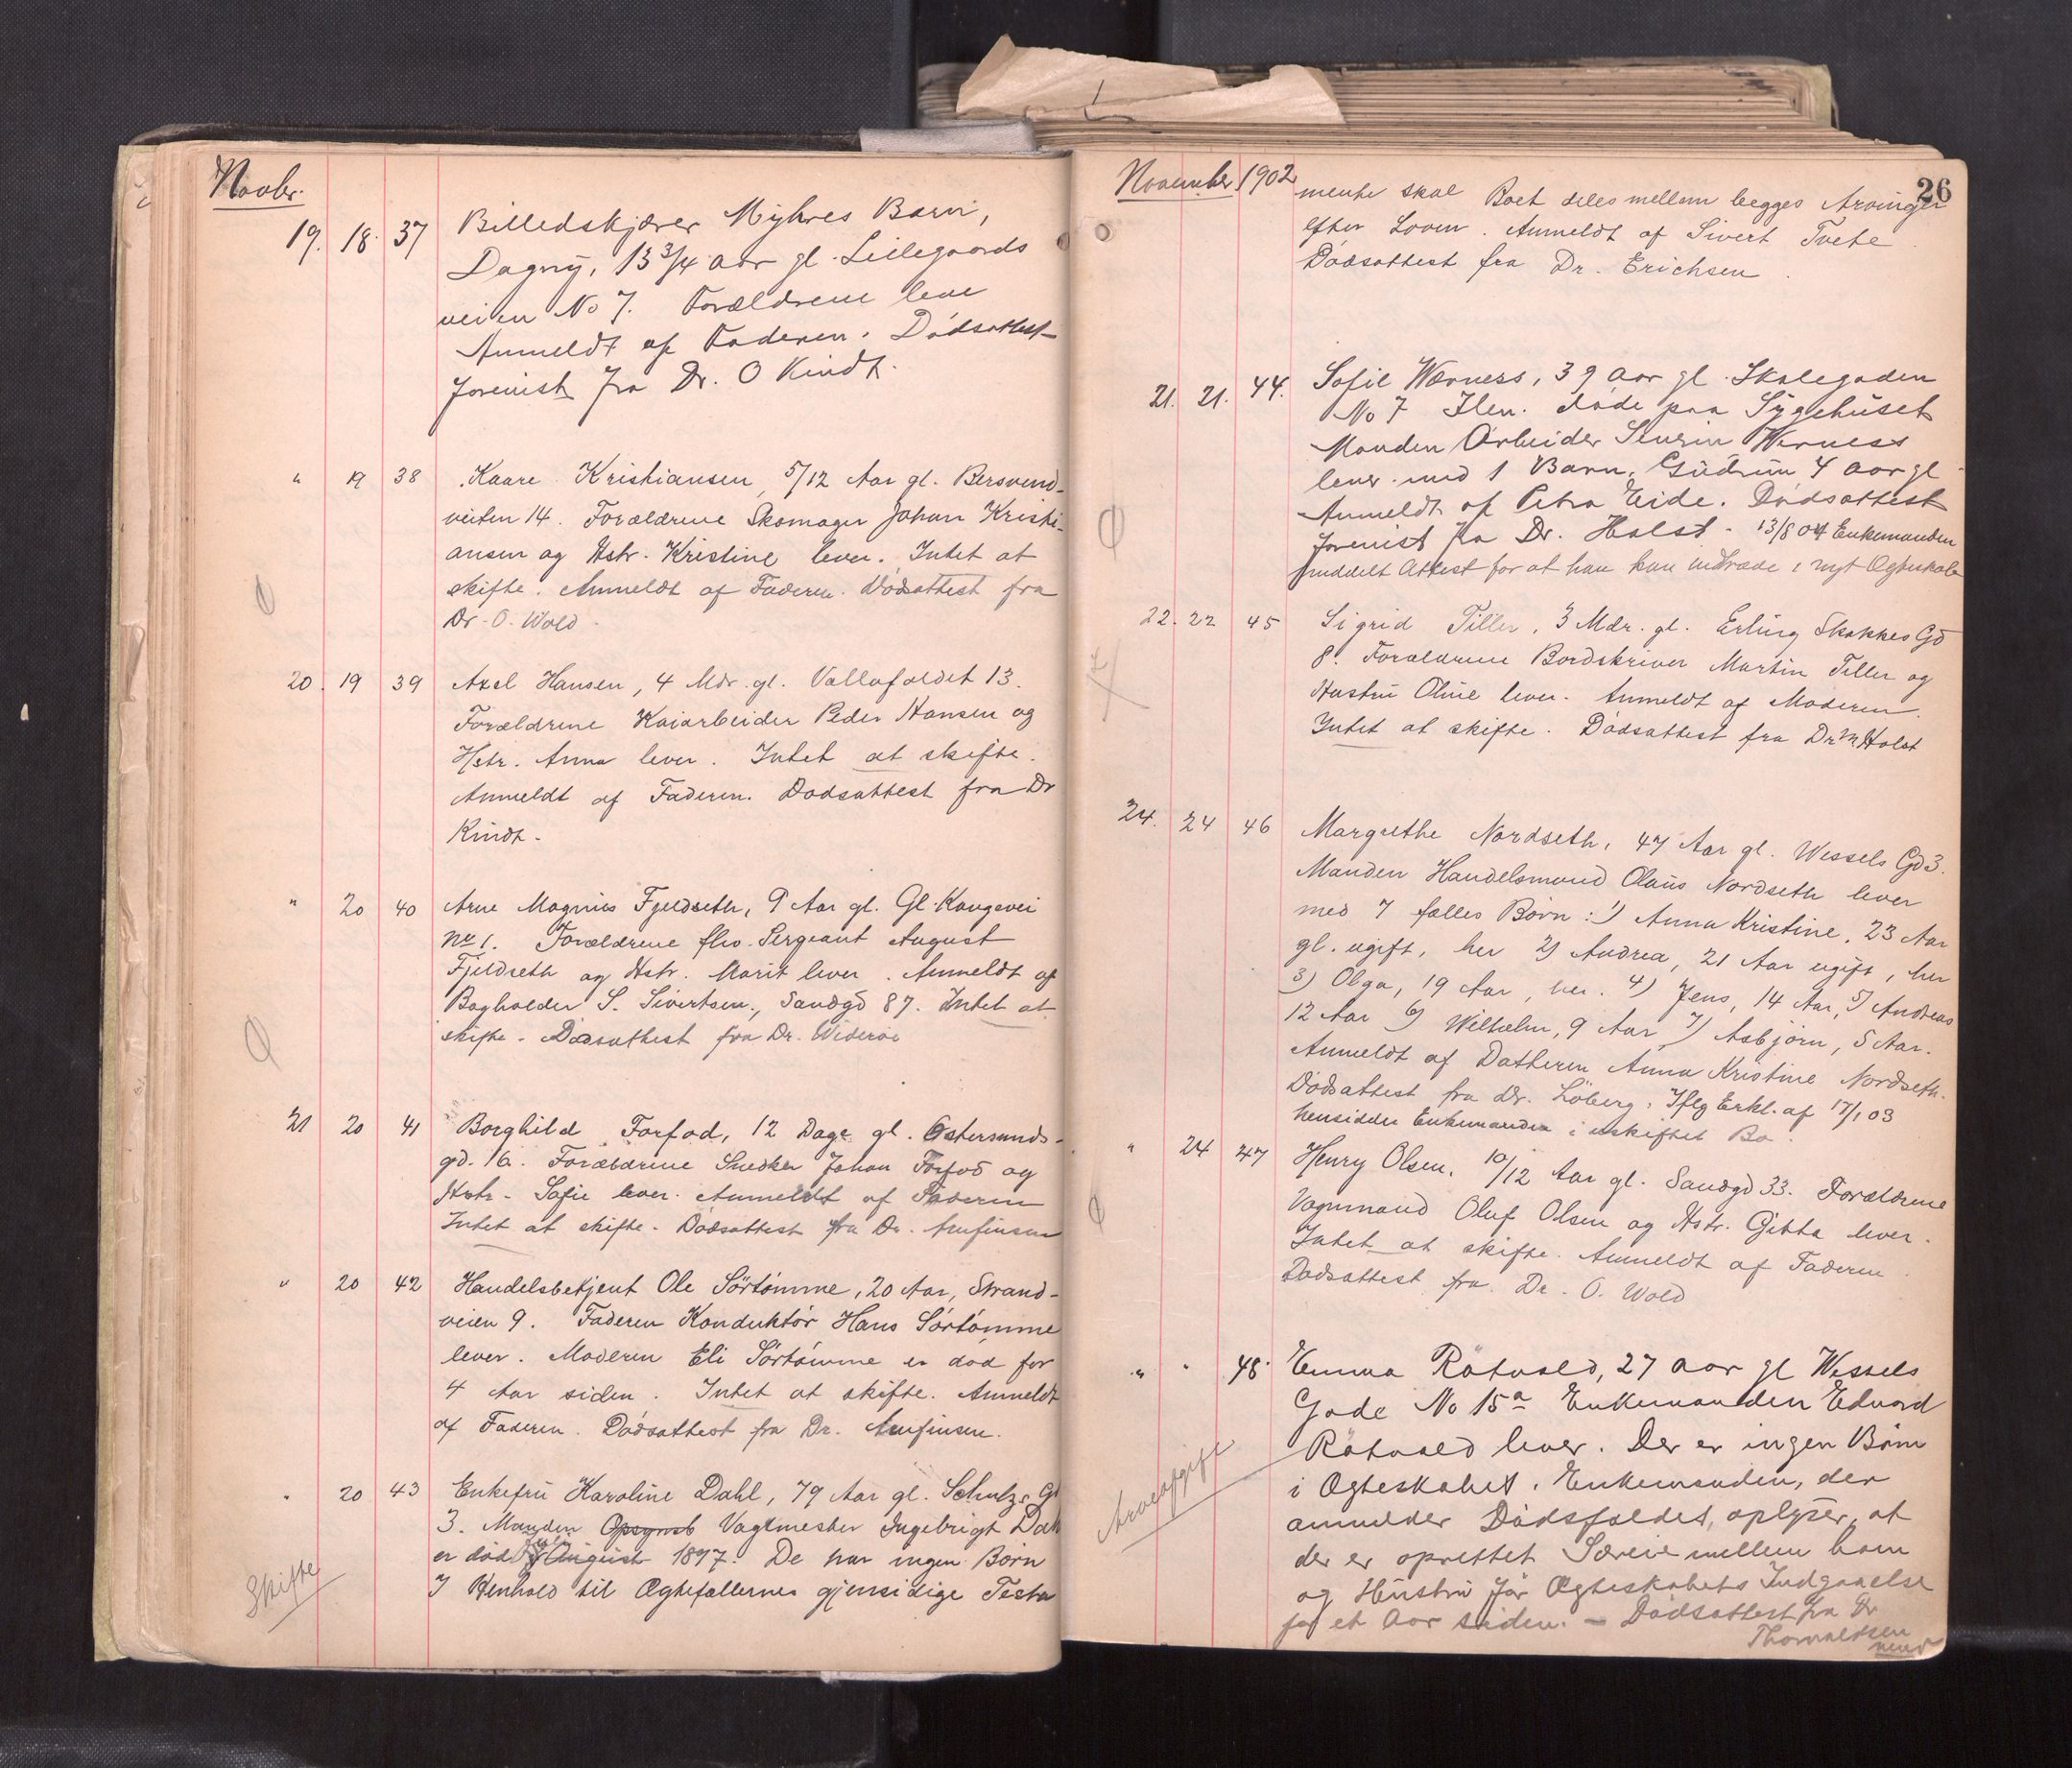 Novbr.
19. 18. 37 Billedskjærer Myhres Barn,
Dagny, 13 3/4 Aar gl. Lillegaards
veien No 7. Forældrene leve
Anmeldt af Faderen. Dödsattest
forevist fra Dr. O Kindt.
" 19 38 Kaare Kristiansen, 5/12 Aar gl. Bersvend-
veiten 14. Forældrene Skomager Johan Kristi-
ansen og Hstr. Kristine lever. Intet at
skifte. Anmeldt af Faderen. Dödsattest fra
Dr. O. Wold.
20. 19 39 Axel Hansen, 4 Mdr. gl. Vollafaldet 13.
Forældrene Kaiarbeider Peder Hansen og
Hstr. Anna lever. Intet at skifte.
Anmeldt af Faderen. Dödsattest fra Dr
Kindt.
" 20 40 Arne Magnus Fjeldseth, 9 Aar gl. Gl. Kongevei
No 1. Forældrene fhv. Sergeant August
Fjeldseth og Hstr. Marit lever. Anmeldt af
Bogholder S. Sivertsen, Sandgd 87. Intet at
skifte. Dödsattest fra Dr. Wideröe
21 20 41 Borghild Forfod, 12 Dage gl. Östersunds-
gd. 16. Forældrene Snedker Johan Forfod og
Hstr. Sofie lever. Anmeldt af Faderen
Intet at skifte. Dödsattest fra Dr. Arnfinsen
" 20 42 Handelsbetjent Ole Sörtömme, 20 Aar, Strand-
veien 9. Faderen Konduktör Hans Sörtömme
lever. Moderen Eli Sörtömme er död for
4 Aar siden. Intet at skifte. Anmeldt
af Faderen. Dödsattest fra Dr. Arnfinsen.
" 20 43 Enkefru Karoline Dahl, 79 Aar gl. Schulz's Gd
3. Manden Opsynsb Vagtmester Ingebrigt Dahl
er död August 1897. De har ingen Börn
I Henhold til Ægtefællernes gjensidige Testa
Skifte
November 1902 26
mente skal Boet deles mellem begges Arvinger
efter Loven. Anmeldt af Sivert Tvete.
Dödsattest fra Dr. Erichsen.
21. 21. 44. Sofie Werness, 39 Aar gl. Skolegaden
No 7 Ilen. døde paa Sygehuset
Manden Arbeider Severin Werness
lever med 1 Barn, Gudrun 4 Aar gl
Anmeldt af Petra Eide. Dødsattest
forevist fra Dr. Holst. 13/8 04 Enkemanden
meddelt Attest for at han kan indtræde i nyt Ægteskab
22. 22 45 Sigrid Tiller, 3 Mdr. gl. Erling Skakkes Gd
8. Forældrene Bordskriver Martin Tiller og
Hustru Oline lever. Anmeldt af Moderen.
Intet at skifte. Dödsattest fra Dr M Holst
24. 24 46 Margrethe Nordseth, 47 Aar gl. Wessels Gd 3.
Manden Handelsmand Olaus Nordseth lever
med 7 fælles Börn: 1) Anna Kristine, 23 Aar
gl. ugift, her 2) Andrea, 21 Aar ugift, her
3) Olga, 19 Aar, her. 4) Jens, 14 Aar, 5) Andreas
12 Aar 6) Wilhelm, 9 Aar 7) Asbjörn, 5 Aar.
Anmeldt af Datteren Anna Kristine Nordseth.
Dödsattest fra Dr. Löberg. Iflg Erkl. af 17/1 03
hensidder Enkemanden i uskiftet Bo.
" 24 47 Henry Olsen, 10/12 Aar gl. Sandgd 33. Forældrene
Vognmand Oluf Olsen og Hstr. Gitta lever.
Intet at skifte. Anmeldt af Faderen.
Dödsattest fra Dr. O. Wold
" " 48. Emma Rötvold, 27 Aar gl Wessels
Gade No 15a Enkemanden Edvard
Rötvold lever. Der er ingen Börn
i Ægteskabet. Enkemanden, der
anmelder Dødsfaldet, oplyser, at
der er oprettet Særeie mellem ham
og Hustru før Ægteskabets Indgaaelse
for et Aar siden. – Dødsattest fra Dr
Thorvaldsen
Arveafgift